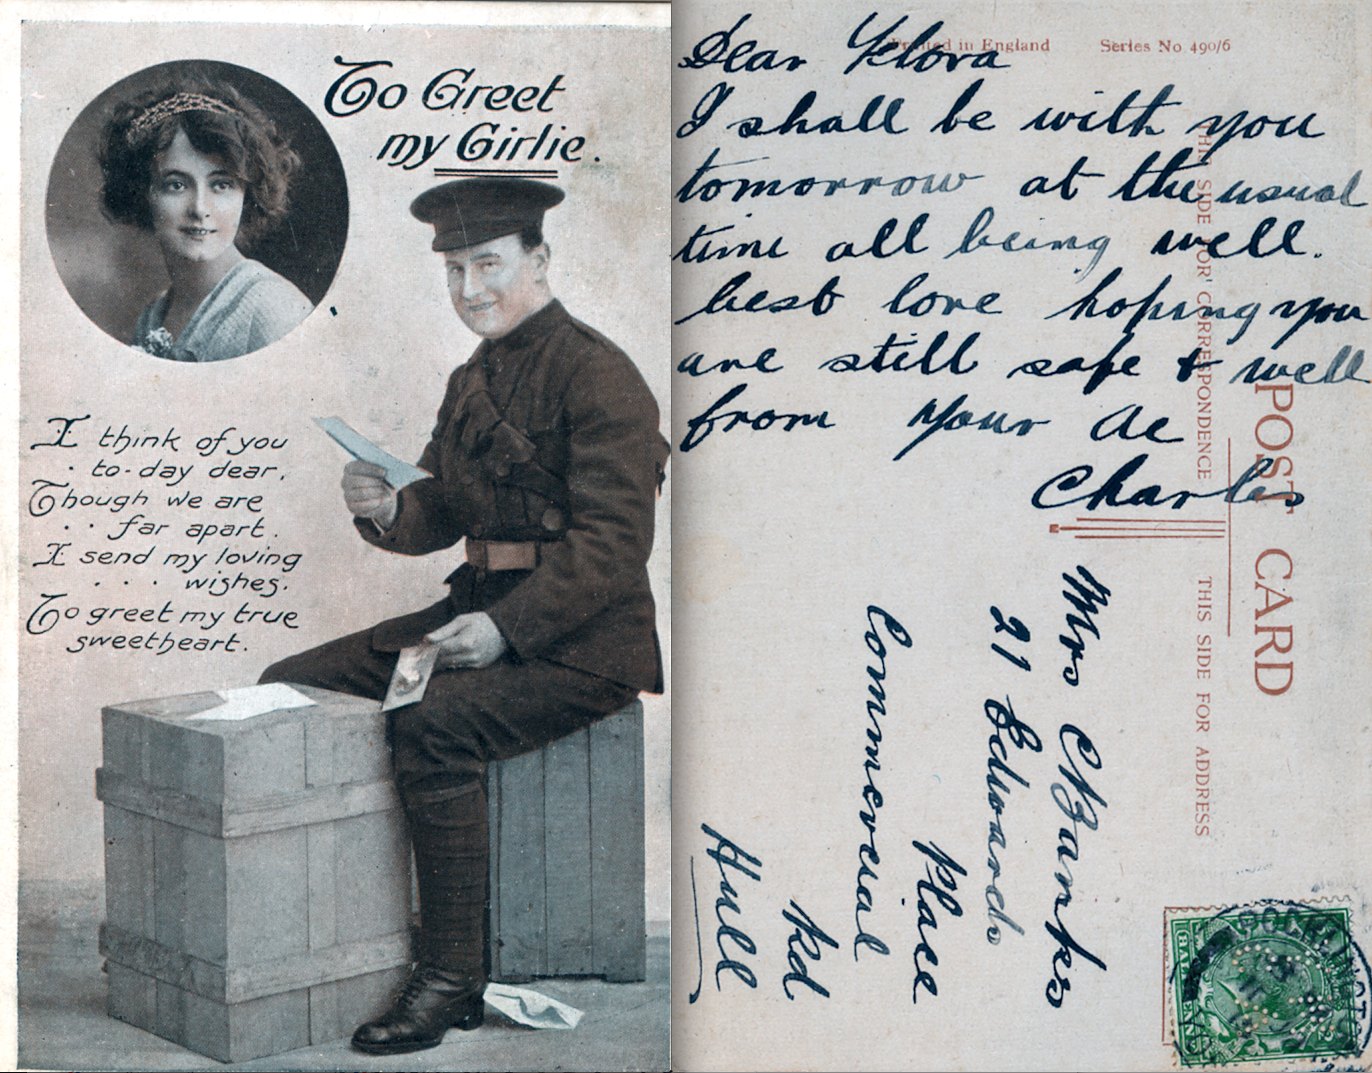 To Greet
my Girlie.
I think of you
to-day dear,
Though we are
far apart.
I send my loving
wishes.
To greet my true
sweetheart.
Printed in England
Series No 490/6
Dear Flora
I shall be with you
tomorrow at the usual
time all being well.
best love hoping you
are still safe & well
from your
Charles
POST CARD
THIS SIDE FOR CORRESPONDENCE
THIS SIDE FOR ADDRESS
Mrs C Banks
21 Edwards
Place
Commercial
Rd
Hull